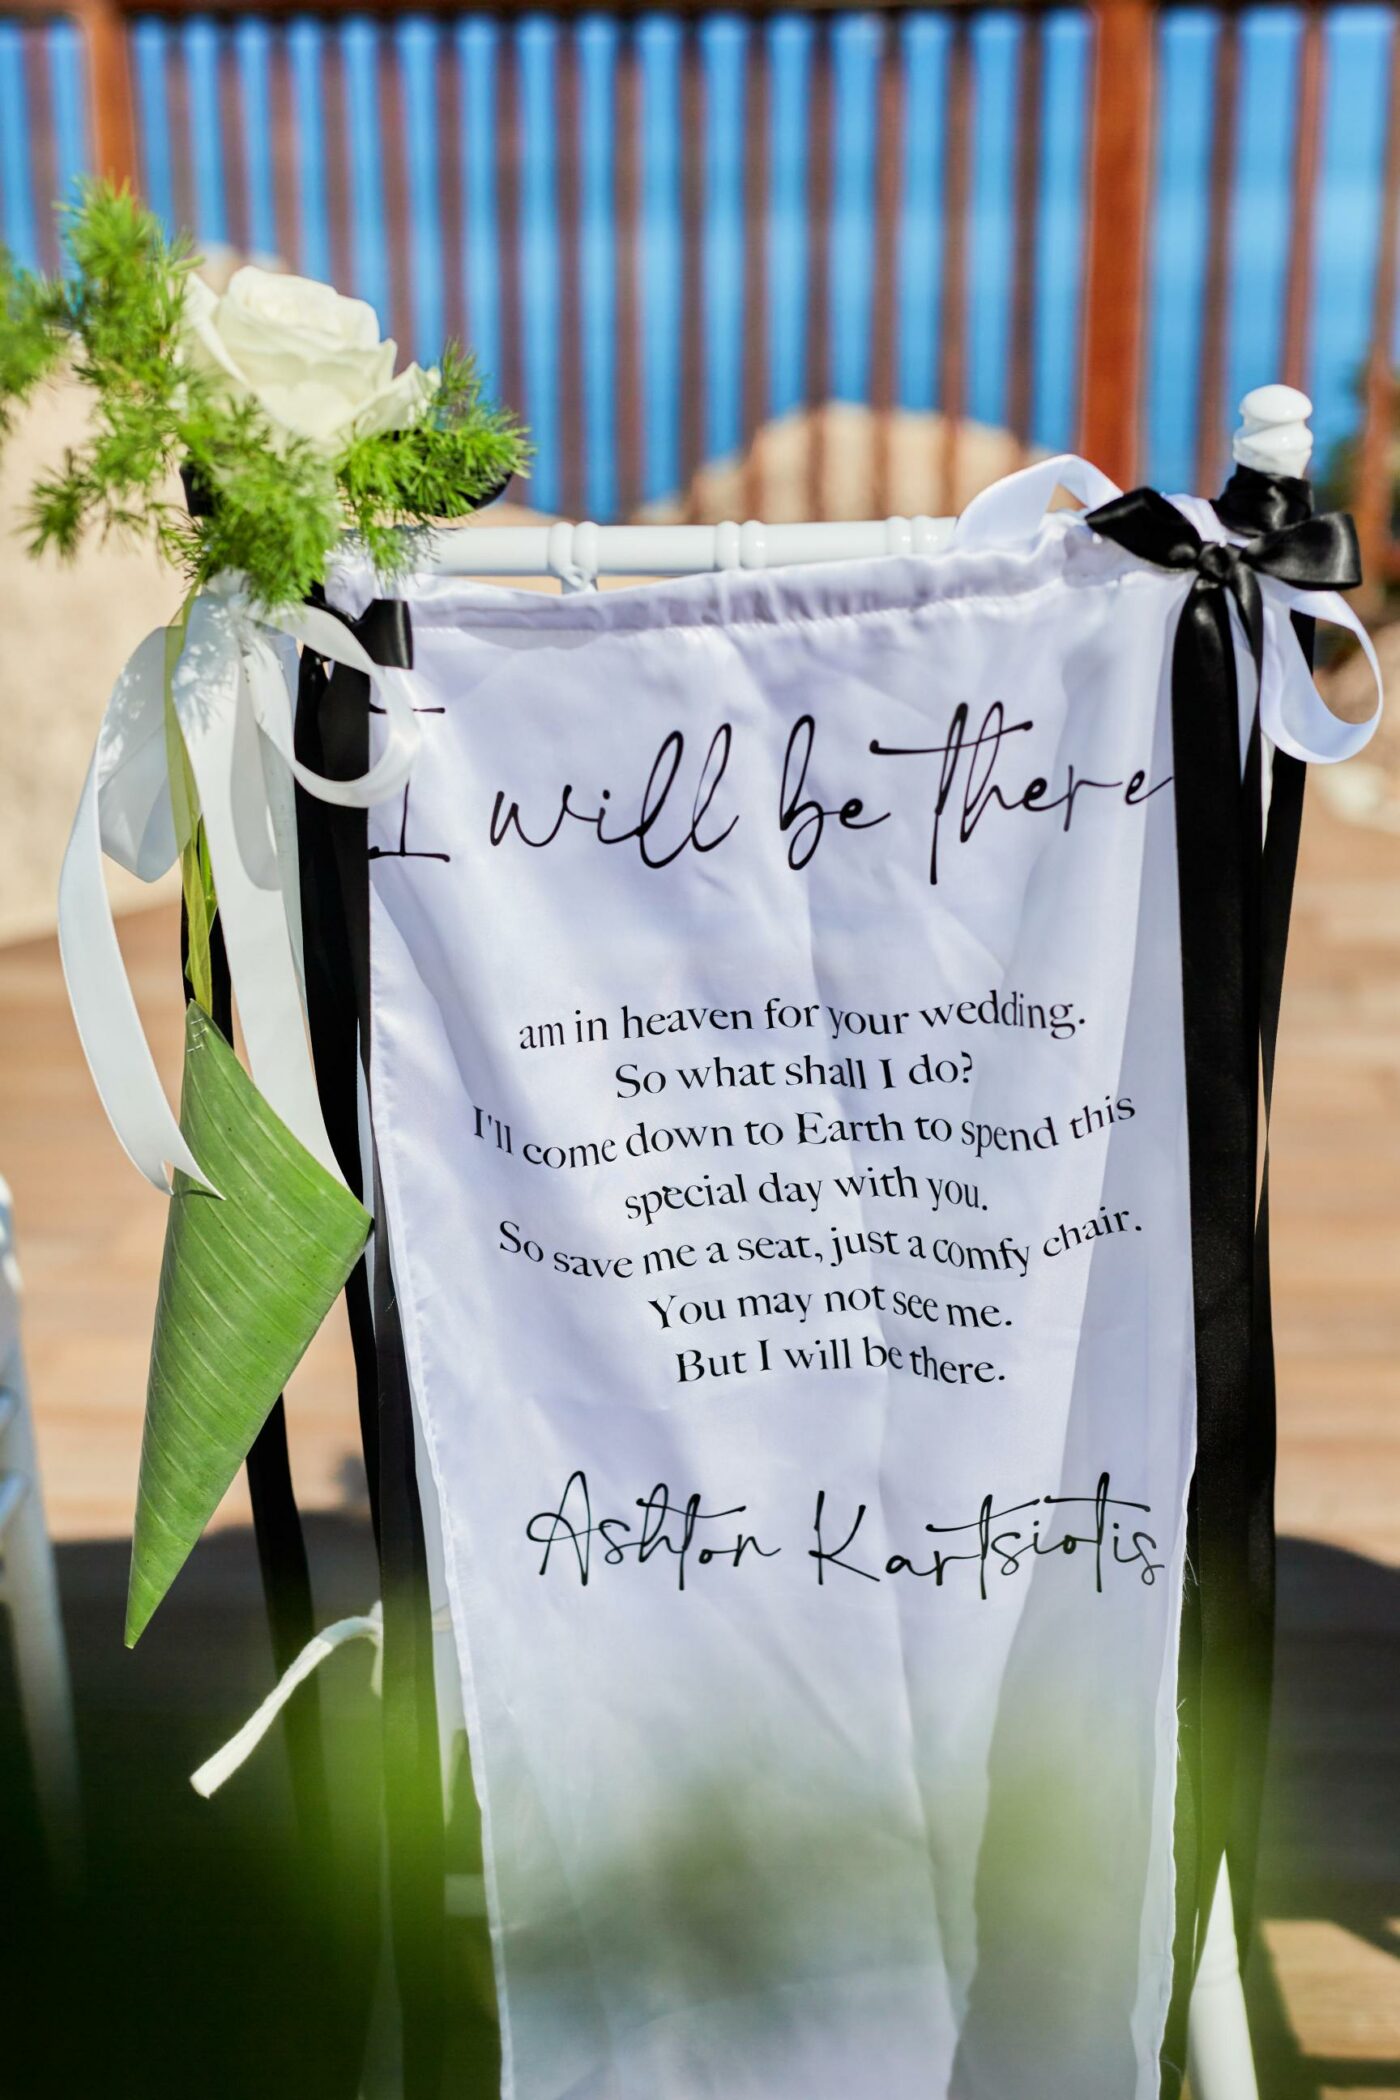 I will be there
am in heaven for your wedding.
So what shall I do?
I'll come down to Earth to spend this
special day with you.
So save me a seat, just a comfy chair.
You may not see me.
But I will be there.
Ashton Kartsiotis